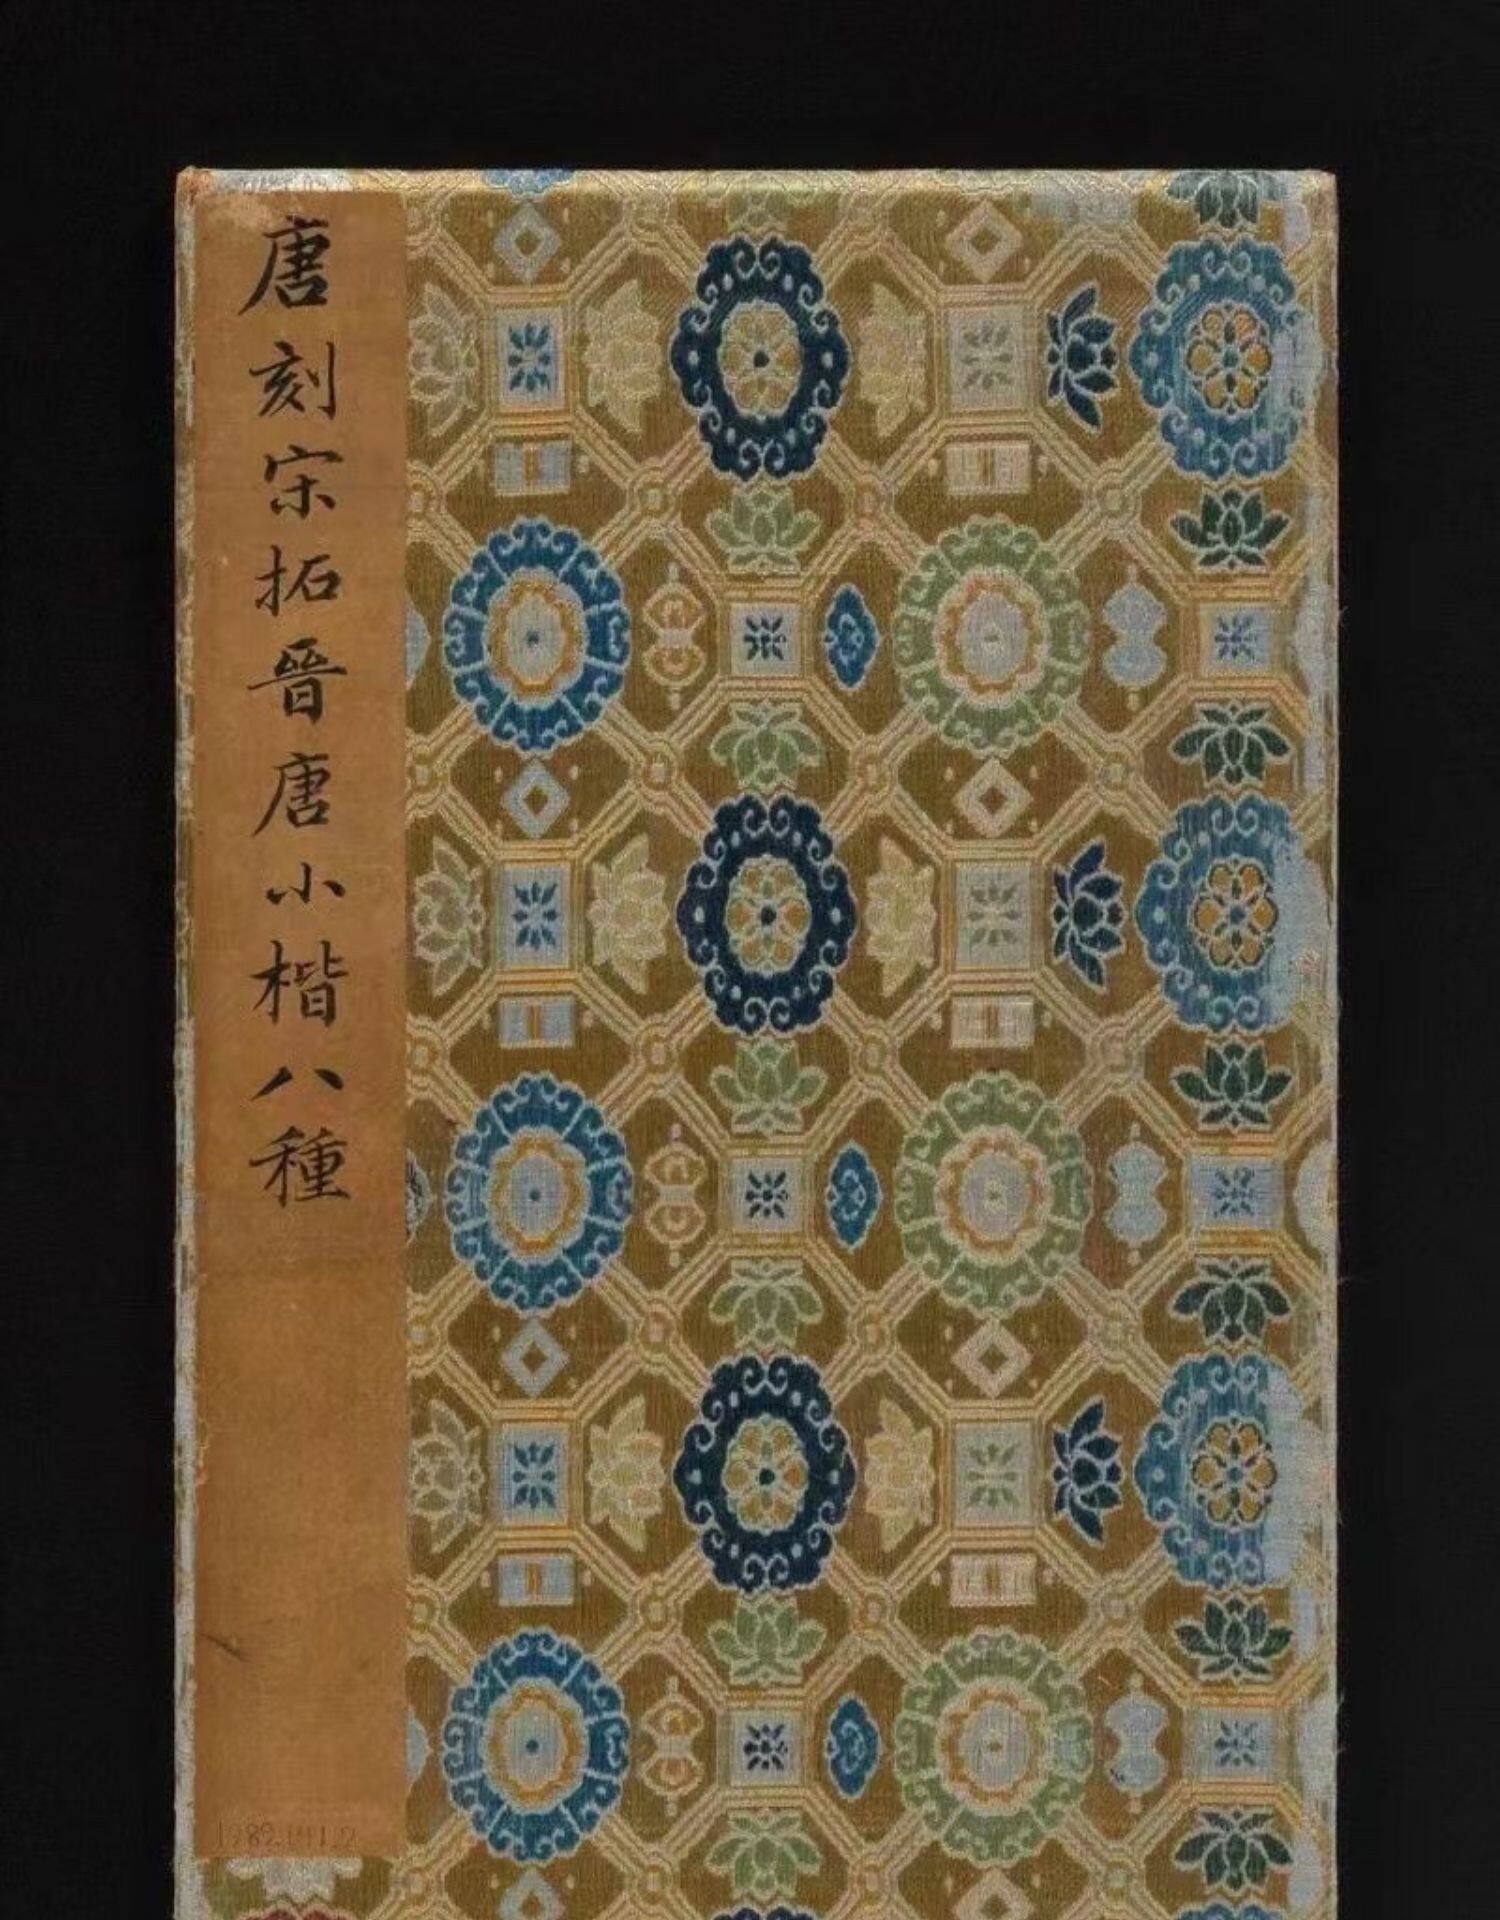 唐刻宋拓晉唐小楷八種